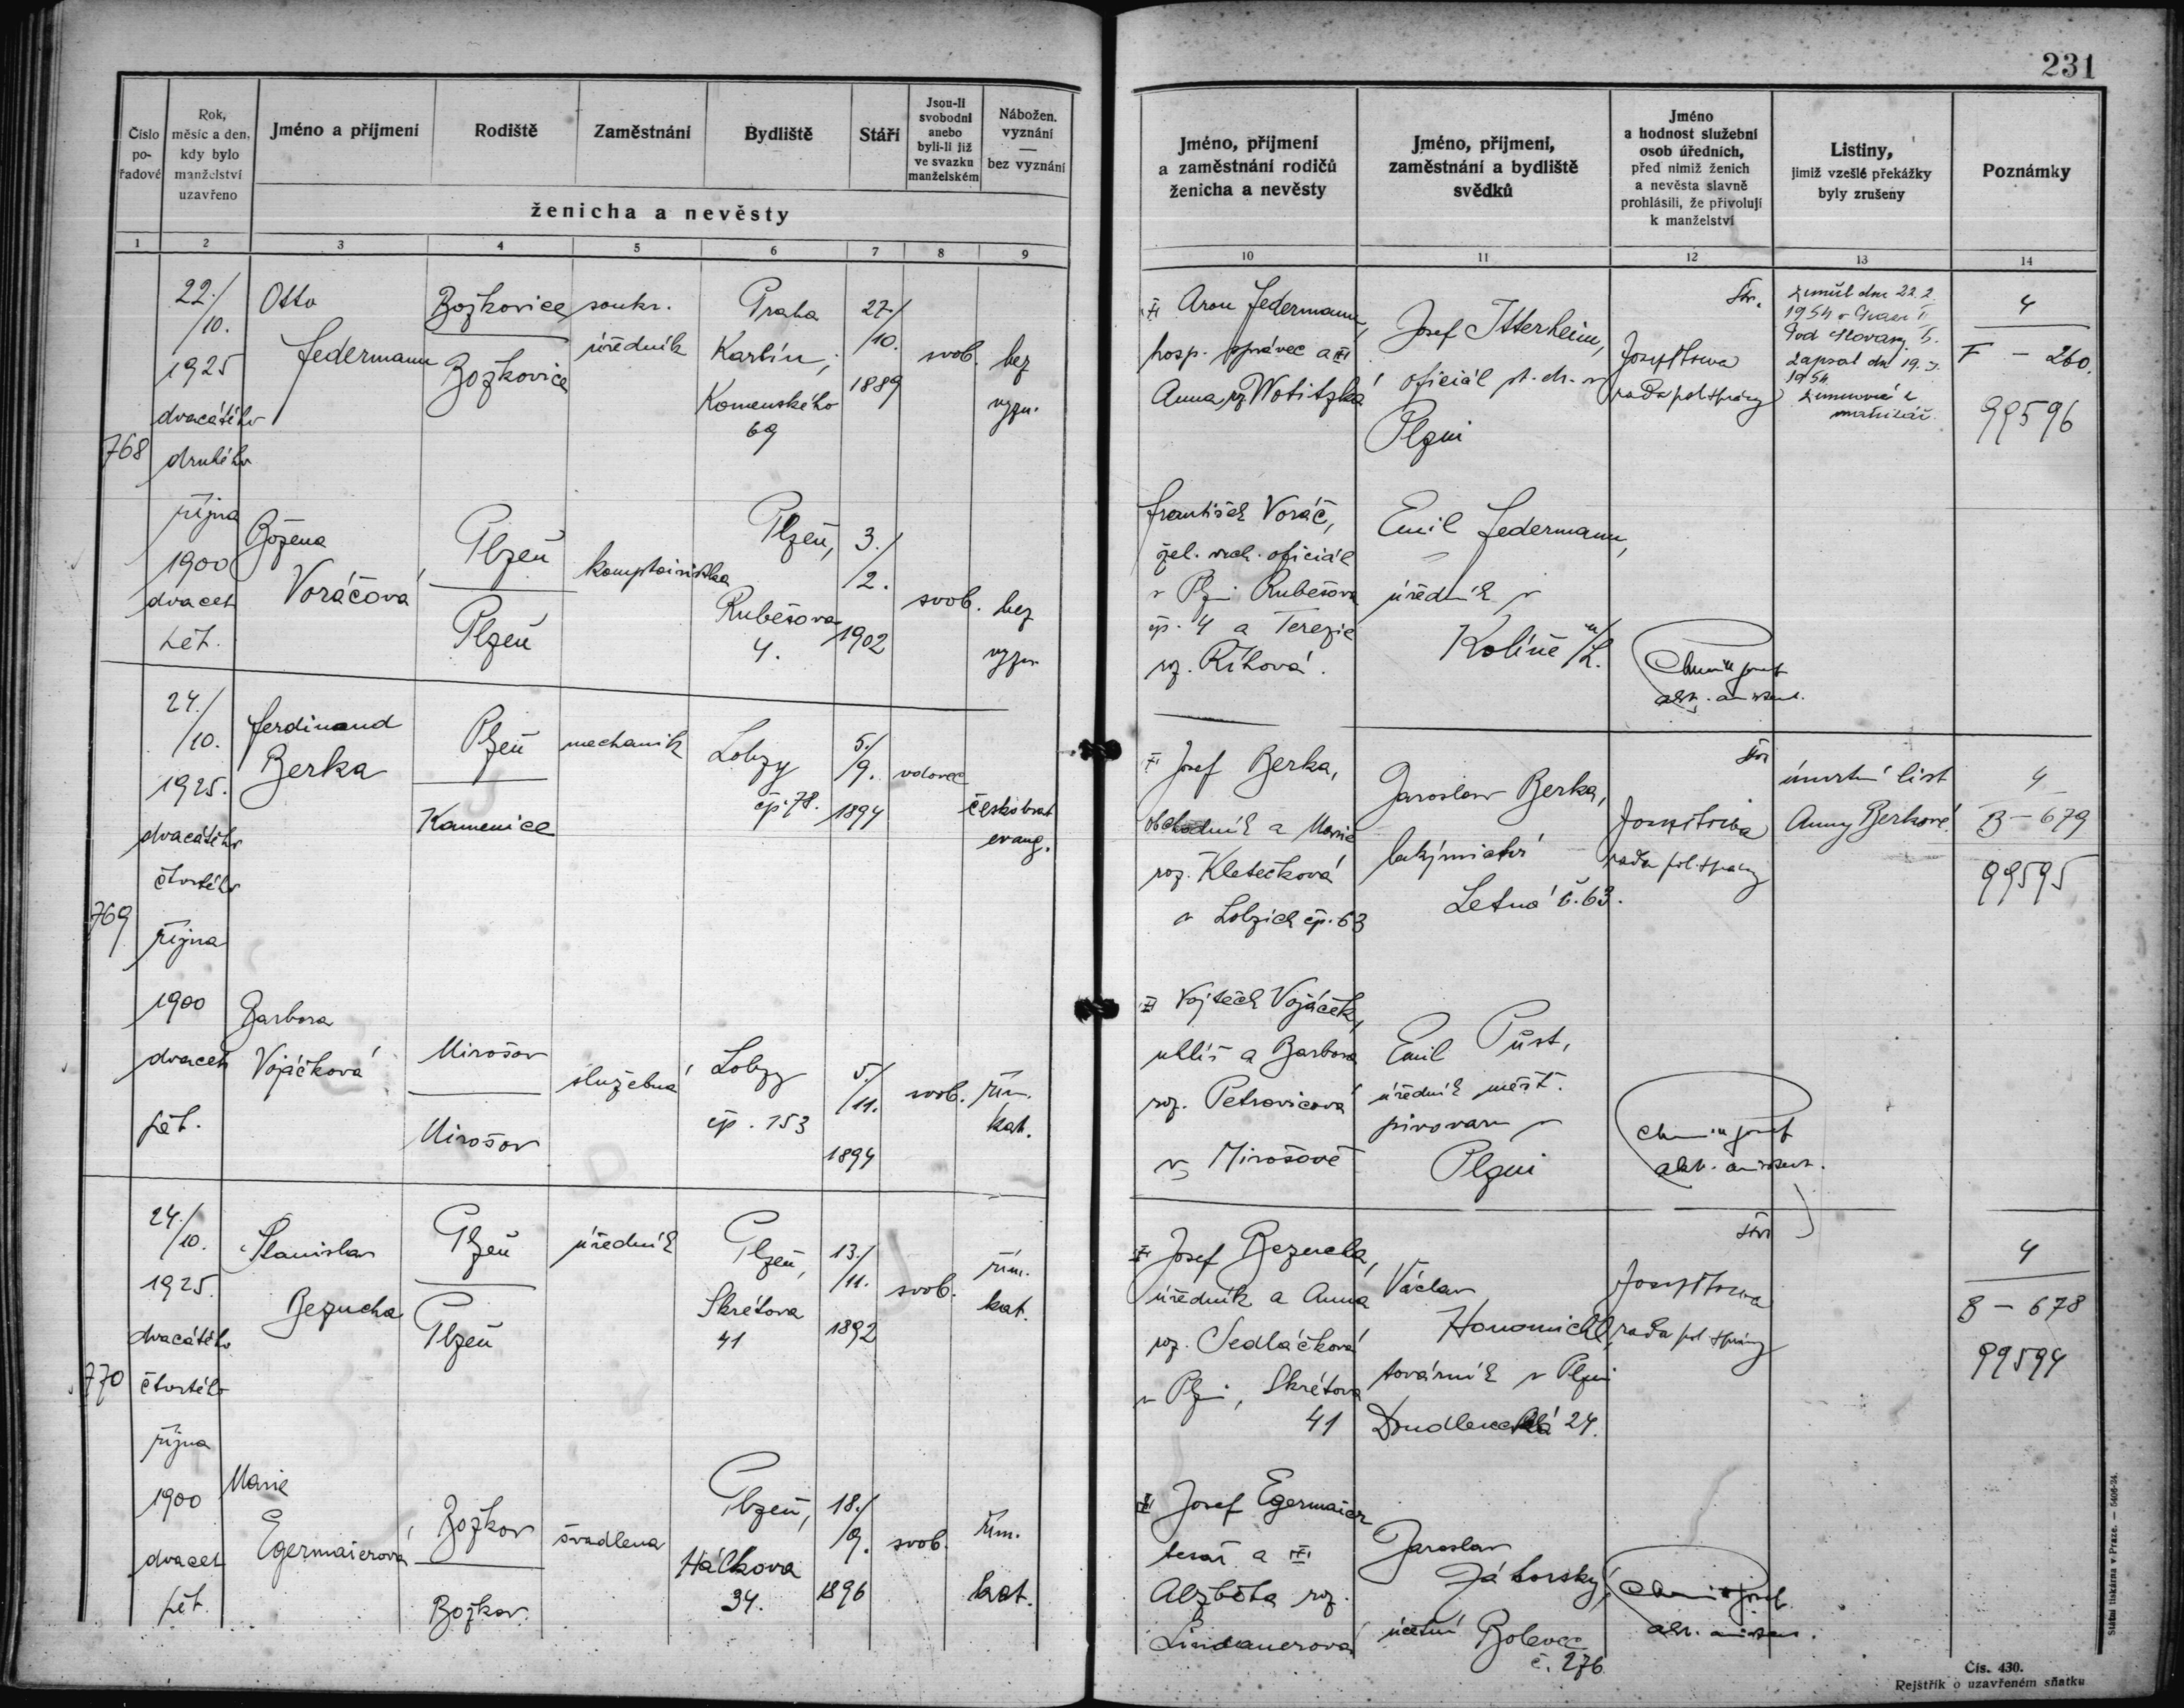 231
Číslo po-řadové
Rok, měsíc a den, kdy bylo manželství uzavřeno
Jméno a příjmení
Rodiště
Zaměstnání
Bydliště
Stáří
Jsou-li svobodni anebo byli-li již ve svazku manželském
Nábožen. vyznání — bez vyznání
ženicha a nevěsty
Jméno, příjmení a zaměstnání rodičů ženicha a nevěsty
Jméno, příjmení, zaměstnání a bydliště svědků
Jméno a hodnost služební osob úředních, před nimiž ženich a nevěsta slavně prohlásili, že přivolují k manželství
Listiny, jimiž vzešlé překážky byly zrušeny
Poznámky
1 2 3 4 5 6 7 8 9 10 11 12 13 14
768
22./
/10.
1925
dvacátého
druhého
října
1900
dvacet
pět.
Otto
Federmann
Božkovice
Božkovice
soukr.
úředník
Praha
Karlín,
Komenského
69
27./
/10.
1889
svob.
bez
vyzn.
Aron Federmann,
hosp. správce a
Anna, roz. Wotitzká
Josef Itterheim,
oficiál st. dr. v
Plzni
rada pol. správy
zemřel dne 22. 2.
1954 v Praze
Pod
zapsal dne 19. 3.
1954
4
F – 260.
99596
Božena
Voráčová
Plzeň
Plzeň
komptoiristka
Plzeň,
Rubešova
4.
3./
/2.
1902
svob.
bez
vyzn.
František Voráč,
žel. vrch. oficiál
v Plzni Rubešova
čp. 4 a Terezie
roz. Říhová.
Emil Federmann,
úředník v
Kolíně n/L.
769
24./
/10.
1925.
dvacátého
čtvrtého
října
1900
dvacet
pět.
Ferdinand
Berka
Plzeň
Kamenice
mechanik
Lobzy
čp. 78.
5./
/9.
1894
vdovec
českobrat
evang.
Josef Berka,
obchodník a Marie
roz. Kletečková
v Lobzích čp. 63
Jaroslav Berka,
Letná č. 63.
rada pol. správy
úmrtní list
Anny Berkové.
4
B – 679
99595
Barbora
Vojáčková
Mirošov
Mirošov
služebná
Lobzy
čp. 153
5./
/11.
1894
svob.
řím.
kat.
Vojtěch Vojáček,
uhlíř a Barbora
roz. Petrovicová
v Mirošově
Emil Půst,
úředník měšť.
pivovaru v
Plzni
770
24./
/10.
1925.
dvacátého
čtvrtého
října
1900
dvacet
pět.
Stanislav
Bezucha
Plzeň
Plzeň
úředník
Plzeň,
Skrétova
41
13./
/11.
1892
svob.
řím.
kat.
Josef Bezucha,
úředník a Anna
roz. Sedláčková
v Plzni, Skrétova
41
Václav
Honomichl,
továrník v Plzni
Doudlevecká 24.
rada pol. správy
4
B – 678
99594
Marie
Egermaierová
Božkov
Božkov.
švadlena
Plzeň,
Hálkova
34.
18./
/9.
1896
svob.
řím.
kat.
Josef Egermaier
tesař a
Alžběta roz.
Lindauerová
Jaroslav
Zátorský,
účetní Bolevec
č. 276
Státní tiskárna v Praze. — 5406-24.
Čís. 430.
Rejstřík o uzavřeném sňatku